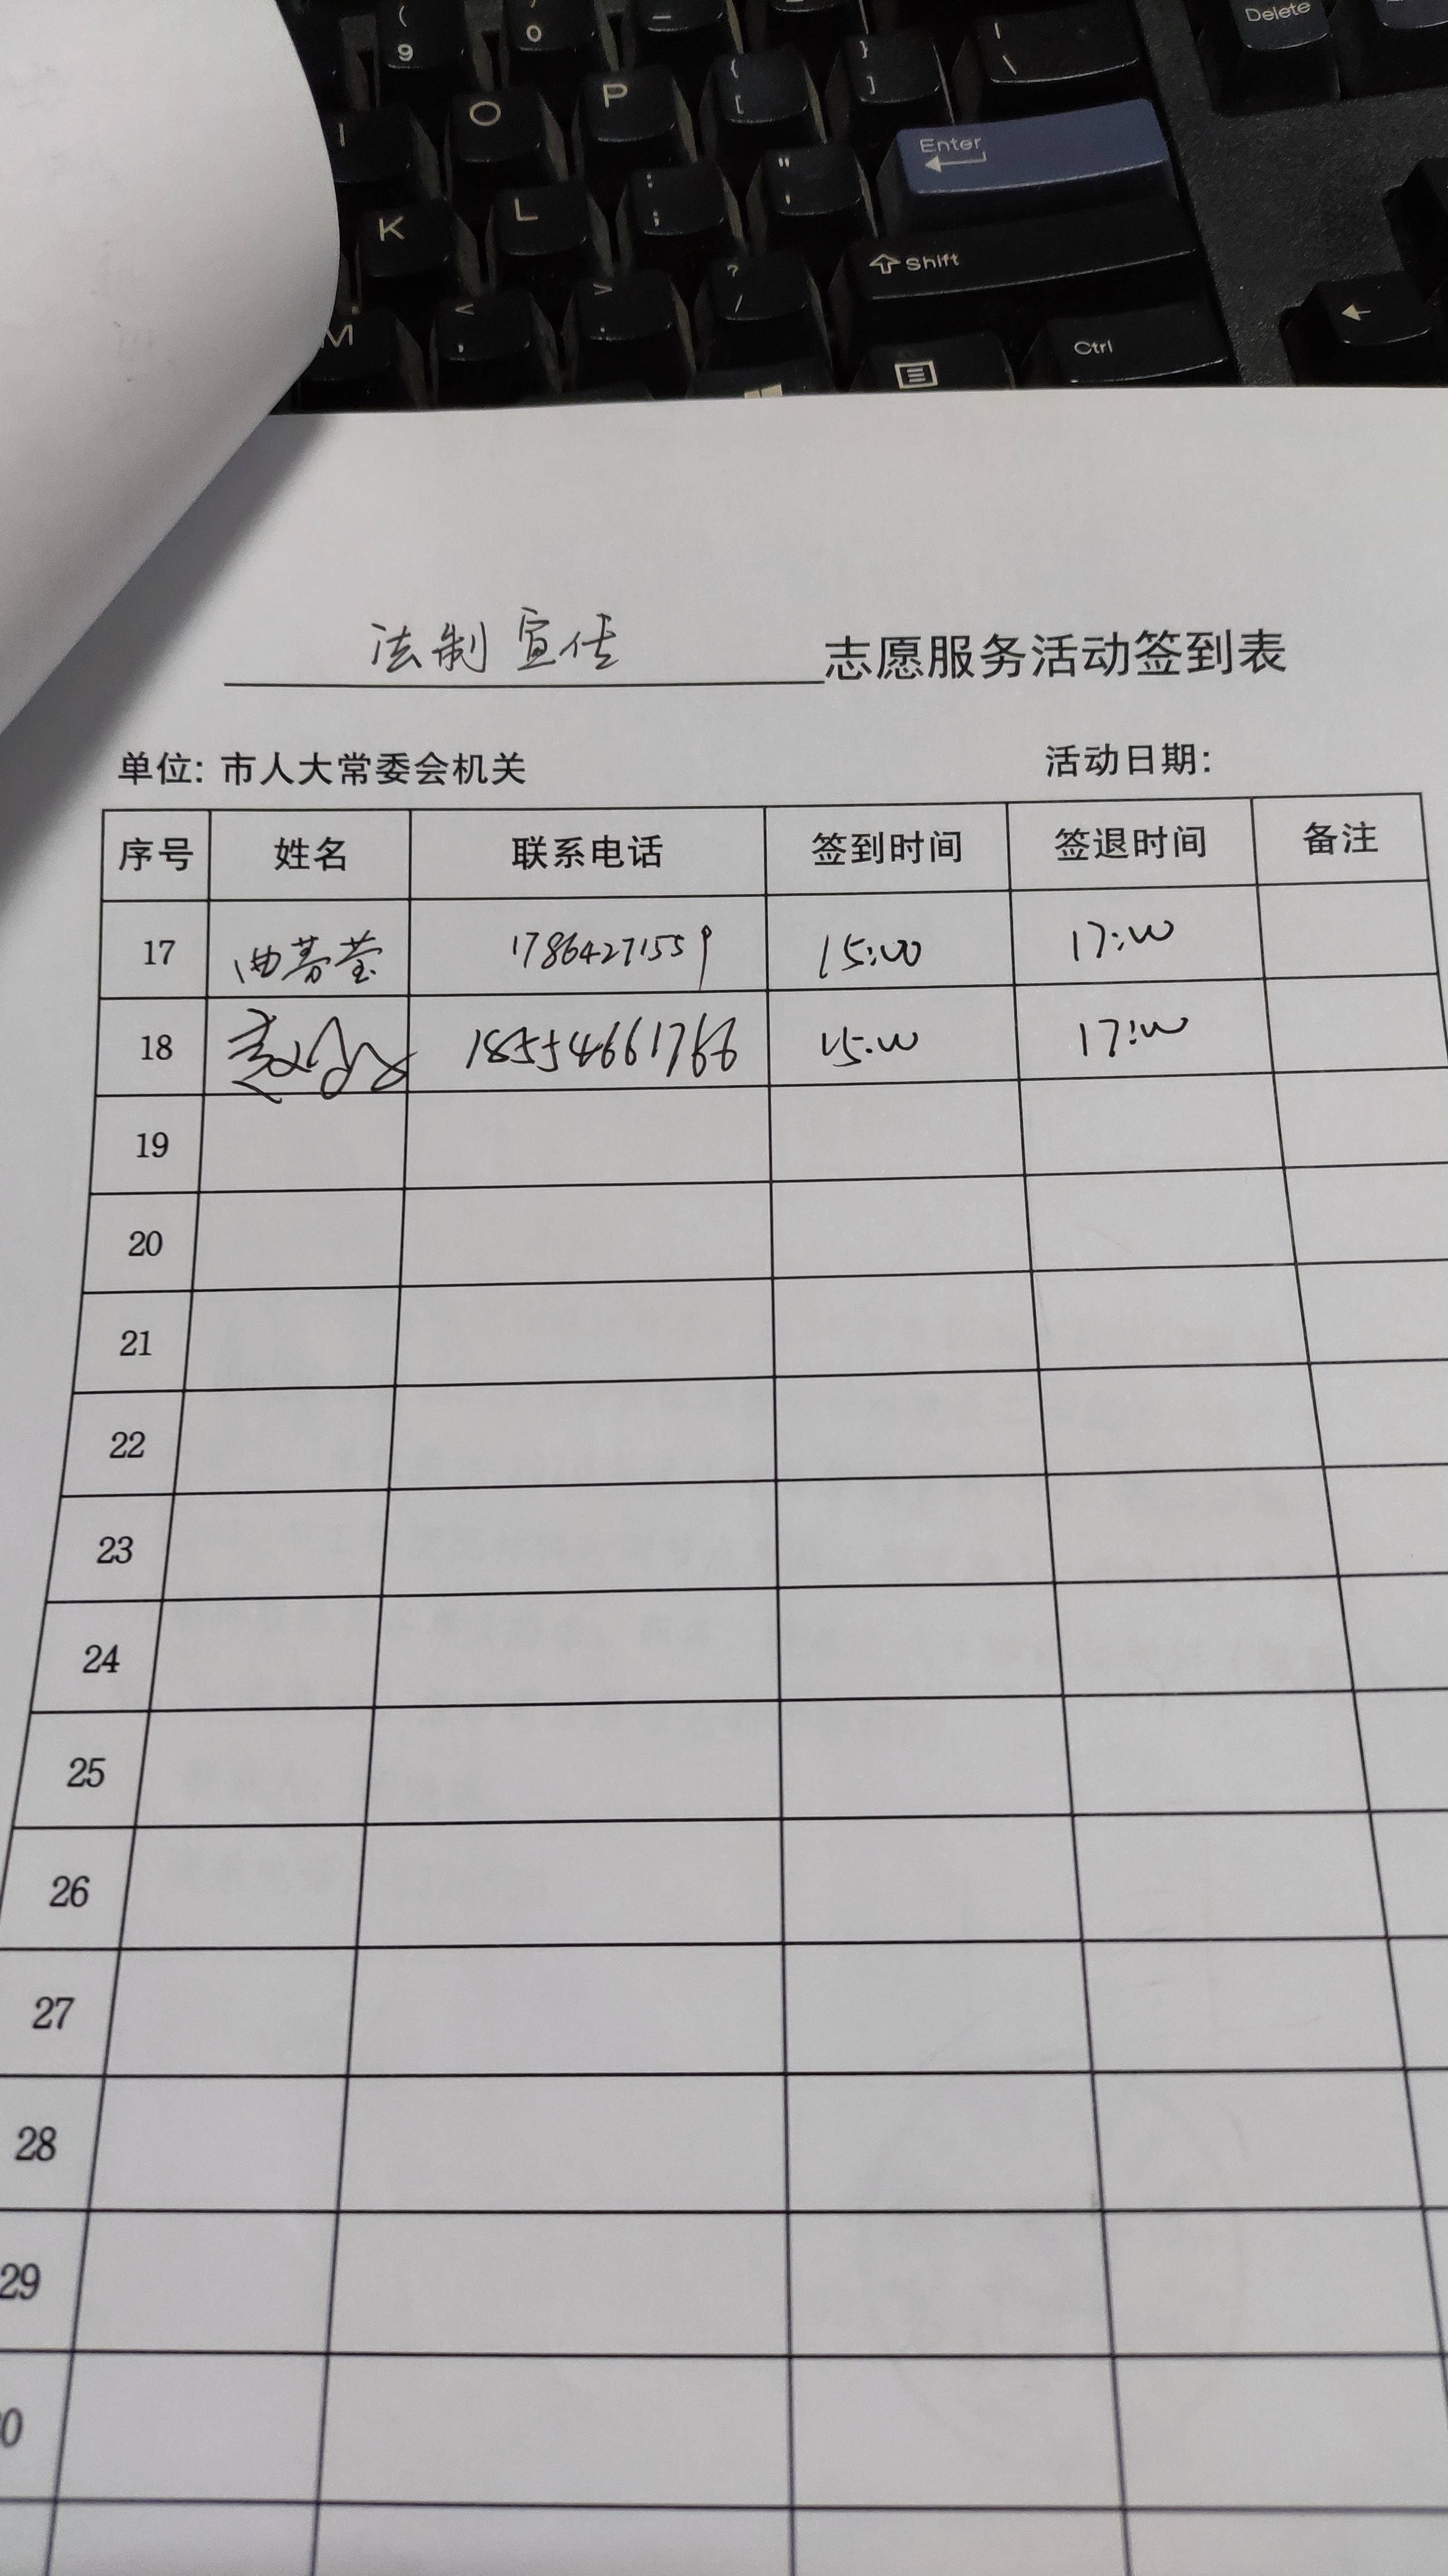 ( 9 ) 0 _ -
I O P { [ } ] | \ Delete
K L : ; " ' Enter
M < , > . ? / Shift
Ctrl
法制宣传 志愿服务活动签到表
单位: 市人大常委会机关 活动日期:
序号 姓名 联系电话 签到时间 签退时间 备注
17 曲 17864271559 15:00 17:00
18 18554661766 15:00 17:00
19
20
21
22
23
24
25
26
27
28
29
0